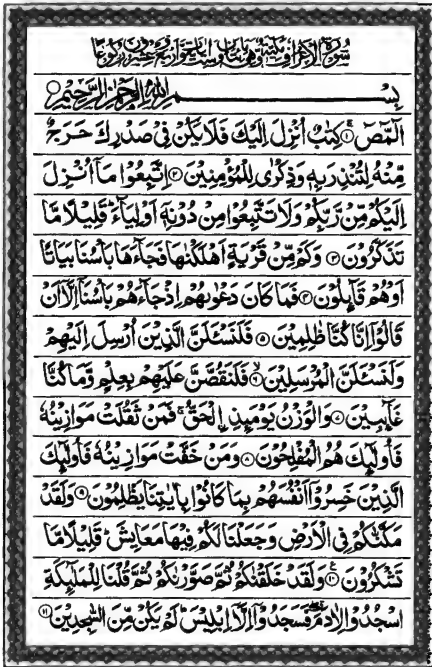 سُوْرَةُ الْاَعْرَافِ مَكِّيَّةٌ وَّهِيَ مِائَتَانِ وَسِتُّ اٰيَاتٍ وَّاَرْبَعٌ وَّعِشْرُوْنَ رُكُوْعًا
بِسْمِ اللّٰهِ الرَّحْمٰنِ الرَّحِيْمِ ○
الٓمّٓصٓ ۚ﴿۱﴾ كِتٰبٌ اُنْزِلَ اِلَيْكَ فَلَا يَكُنْ فِيْ صَدْرِكَ حَرَجٌ
مِّنْهُ لِتُنْذِرَ بِهٖ وَذِكْرٰى لِلْمُؤْمِنِيْنَ ﴿۲﴾ اِتَّبِعُوْا مَاۤ اُنْزِلَ
اِلَيْكُمْ مِّنْ رَّبِّكُمْ وَلَا تَتَّبِعُوْا مِنْ دُوْنِهٖۤ اَوْلِيَآءَ ؕ قَلِيْلًا مَّا
تَذَكَّرُوْنَ ﴿۳﴾ وَكَمْ مِّنْ قَرْيَةٍ اَهْلَكْنٰهَا فَجَآءَهَا بَاْسُنَا بَيَاتًا
اَوْ هُمْ قَآئِلُوْنَ ﴿۴﴾ فَمَا كَانَ دَعْوٰىهُمْ اِذْ جَآءَهُمْ بَاْسُنَاۤ اِلَّاۤ اَنْ
قَالُوْۤا اِنَّا كُنَّا ظٰلِمِيْنَ ﴿۵﴾ فَلَنَسْئَلَنَّ الَّذِيْنَ اُرْسِلَ اِلَيْهِمْ
وَلَنَسْئَلَنَّ الْمُرْسَلِيْنَ ﴿۶﴾ فَلَنَقُصَّنَّ عَلَيْهِمْ بِعِلْمٍ وَّمَا كُنَّا
غَآئِبِيْنَ ﴿۷﴾ وَالْوَزْنُ يَوْمَئِذِ ِۨالْحَقُّ ۚ فَمَنْ ثَقُلَتْ مَوَازِيْنُهٗ
فَاُولٰٓئِكَ هُمُ الْمُفْلِحُوْنَ ﴿۸﴾ وَمَنْ خَفَّتْ مَوَازِيْنُهٗ فَاُولٰٓئِكَ
الَّذِيْنَ خَسِرُوْۤا اَنْفُسَهُمْ بِمَا كَانُوْا بِاٰيٰتِنَا يَظْلِمُوْنَ ﴿۹﴾ وَلَقَدْ
مَكَّنّٰكُمْ فِي الْاَرْضِ وَجَعَلْنَا لَكُمْ فِيْهَا مَعَايِشَ ؕ قَلِيْلًا مَّا
تَشْكُرُوْنَ ﴿۱۰﴾ وَلَقَدْ خَلَقْنٰكُمْ ثُمَّ صَوَّرْنٰكُمْ ثُمَّ قُلْنَا لِلْمَلٰٓئِكَةِ
اسْجُدُوْا لِاٰدَمَ ۖ فَسَجَدُوْۤا اِلَّاۤ اِبْلِيْسَ ؕ لَمْ يَكُنْ مِّنَ السّٰجِدِيْنَ ﴿۱۱﴾